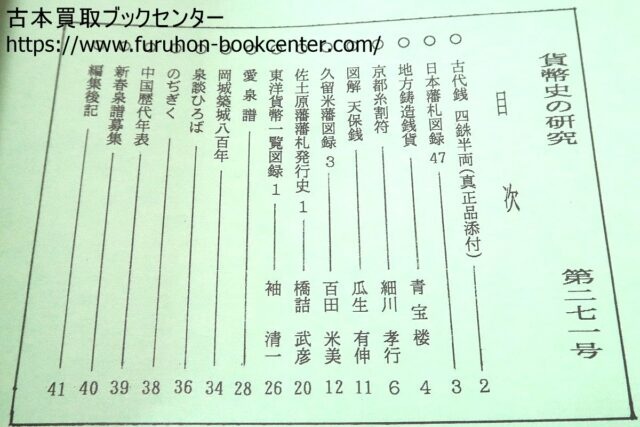 古本買取ブックセンター
https://www.furuhon-bookcenter.com/
貨幣史の研究 第二七一号
目次
○ 古代銭 四銖半両(真正品添付) 2
○ 日本藩札図録 47 3
○ 地方鋳造銭貨 青宝楼 4
○ 京都糸割符 細川 孝行 6
○ 図解 天保銭 瓜生 有伸 11
○ 久留米藩図録 3 百田 米美 12
○ 佐土原藩藩札発行史 1 橋詰 武彦 20
○ 東洋貨幣一覧図録 1 袖 清一 26
○ 愛泉譜 28
○ 岡城築城八百年 34
○ 泉談ひろば 36
○ のぢぎく 38
○ 中国歴代年表 39
○ 新春泉譜募集 40
○ 編集後記 41